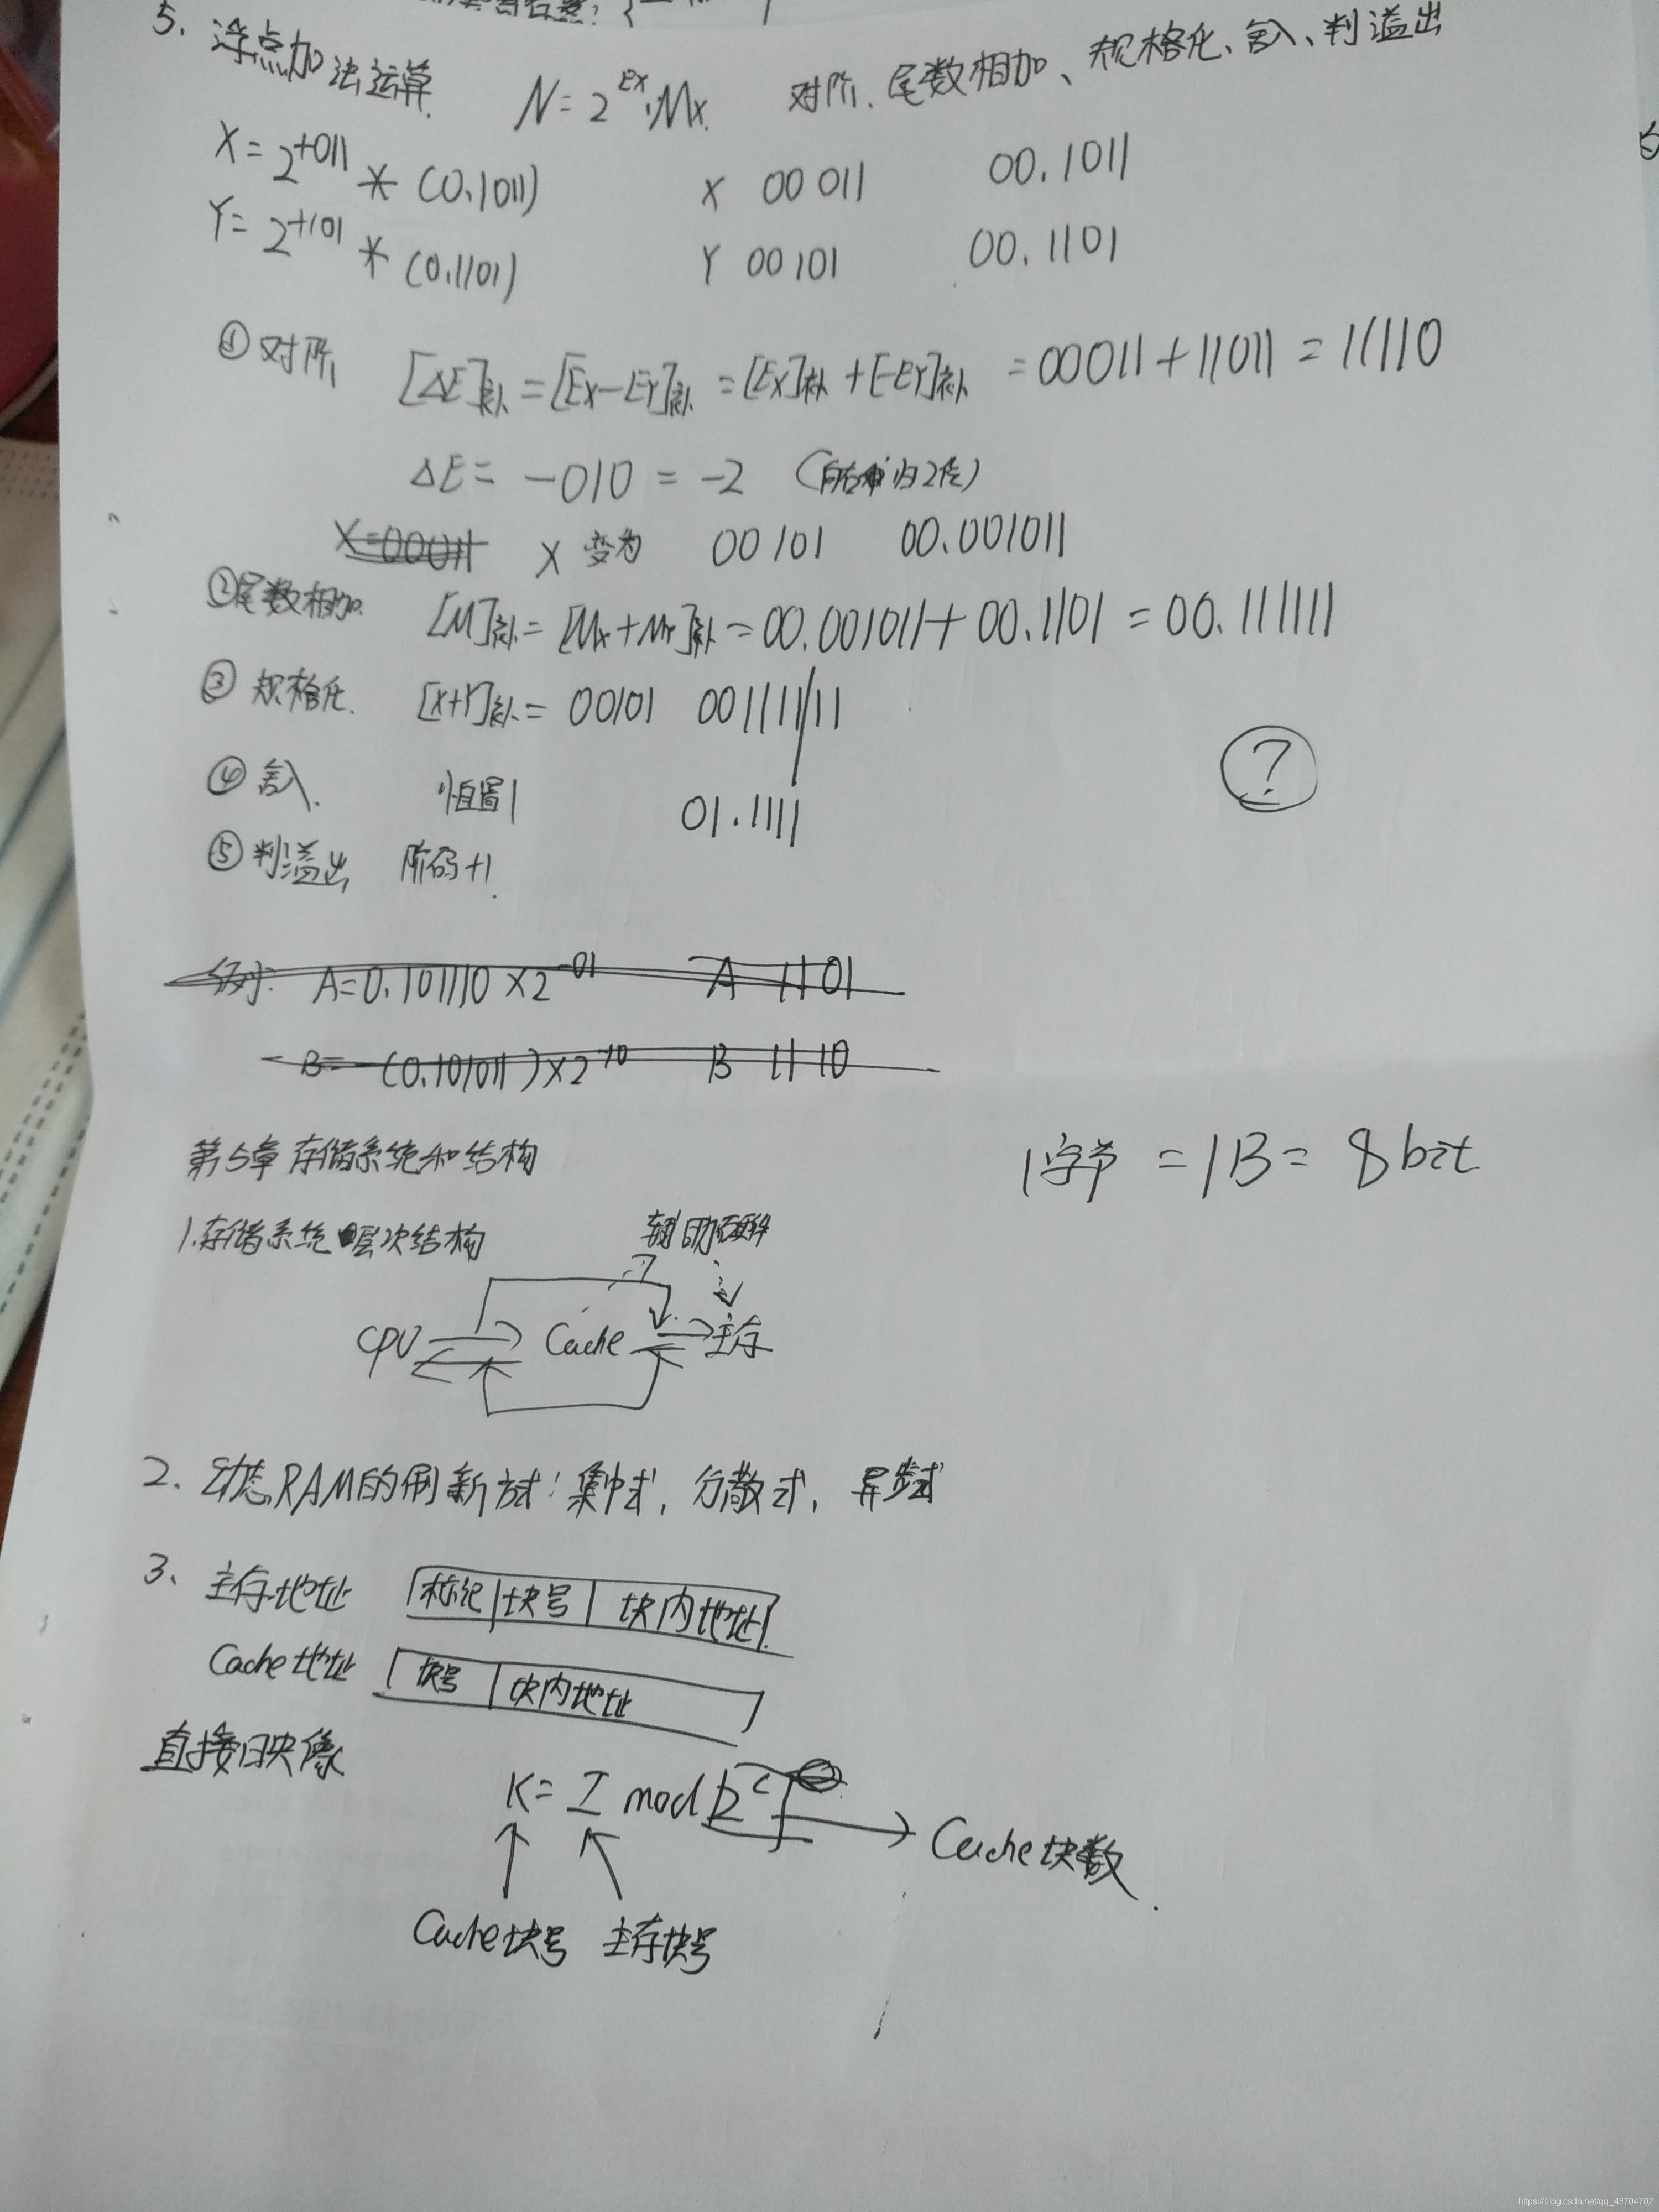 5. 浮点加法运算 N=2^Ex·Mx. 对阶、尾数相加、规格化、舍入、判溢出
X=2^+011 * (0.1011) X 00 011 00.1011
Y=2^+101 * (0.1101) Y 00101 00.1101
① 对阶 [ΔE]补=[Ex-EY]补=[Ex]补+[-EY]补=00011+11011=11110
ΔE=-010=-2
X=00011 X 变为 00101 00.001011
②尾数相加. [M]补=[Mx+MY]补=00.001011+00.1101=00.111111
③ 规格化. [X+Y]补=00101 00111111
④ 舍入. 恒置1 01.1111
?
⑤ 判溢出 阶码+1.
例: A=0.101110×2^-01 A 1101
B=-(0.101011)×2^-10 B 1110
第5章 存储系统和结构
1字节=1B=8bit
1.存储系统 层次结构
辅助硬件
CPU Cache 主存
2. 动态RAM的刷新方式:集中式,分散式,异步式
3、主存地址 标记 块号 块内地址
Cache地址 块号 块内地址
直接映像
K=I mod 2^c Cache块数.
Cache块号 主存块号
https://blog.csdn.net/qq_43704702